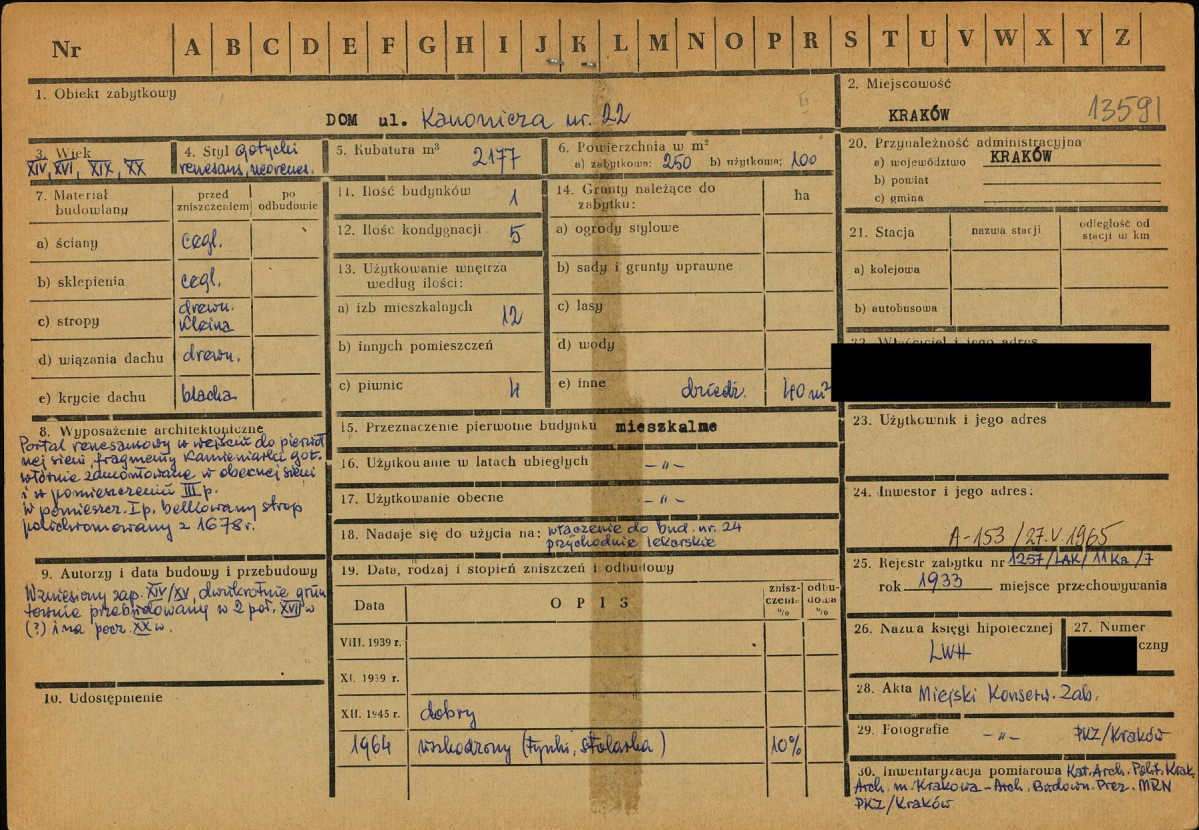 Nr A B C D E F G H I J K L M N O P R S T U V W X Y Z
1. Obiekt zabytkowy
DOM ul. Kanonicza nr. 22
2. Miejscowość
KRAKÓW
13591
3. Wiek
XIV, XVI, XIX, XX
4. Styl gotycki
renesans, neorenes.
5. Kubatura m³ 2177
6. Powierzchnia w m²
a) zabytkowa: 250 b) użytkowa: 100
20. Przynależność administracyjna
a) województwo KRAKÓW
b) powiat
c) gmina
7. Materiał budowlany
przed zniszczeniem
po odbudowie
a) ściany cegl.
b) sklepienia cegl.
c) stropy drewn.
Kleina
d) wiązania dachu drewn.
e) krycie dachu blacha
11. Ilość budynków 1
12. Ilość kondygnacji 5
13. Użytkowanie wnętrza
według ilości:
a) izb mieszkalnych 12
b) innych pomieszczeń
c) piwnic 4
14. Grunty należące do
zabytku:
ha
a) ogrody stylowe
b) sady i grunty uprawne
c) lasy
d) wody
e) inne dziedz. 40 m²
21. Stacja
nazwa stacji
odległość od
stacji w km
a) kolejowa
b) autobusowa
22. Właściciel i jego adres
8. Wyposażenie architektoniczne
Portal renesansowy w wejściu do pierwot
nej sieni, fragmenty kamieniarki got.
wtórnie zamontowane w obecnej sieni
i w pomieszczeniu III p.
w pomieszcz. I p. belkowany strop
polichromowany z 1678 r.
15. Przeznaczenie pierwotne budynku mieszkalne
16. Użytkowanie w latach ubiegłych -"-
17. Użytkowanie obecne -"-
18. Nadaje się do użycia na: włączenie do bud. nr. 24
przychodnie lekarskie
23. Użytkownik i jego adres
24. Inwestor i jego adres:
A-153/27.V.1965
25. Rejestr zabytku nr 1257/LAK/11Ka/7
rok 1933 miejsce przechowywania
9. Autorzy i data budowy i przebudowy
Wzniesiony zap. XIV/XV, dwukrotnie grun
townie przebudowany w 2 poł. XVII w
(?) i na pocz. XX w.
10. Udostępnienie
19. Data, rodzaj i stopień zniszczeń i odbudowy
Data
OPIS
znisz-
czenia
%
odbu-
dowa
%
VIII. 1939 r.
XI. 1939 r.
XII. 1945 r. dobry
1964 uszkodzony (tynki, stolarka) 10%
26. Nazwa księgi hipotecznej
LWH
27. Numer
czny
28. Akta Miejski Konserw. Zab.
29. Fotografie -"- PKZ/Kraków
30. Inwentaryzacja pomiarowa Kat. Arch. Polit. Krak.
Arch. m. Krakowa - Arch. Budown. Prez. MRN
PKZ/Kraków